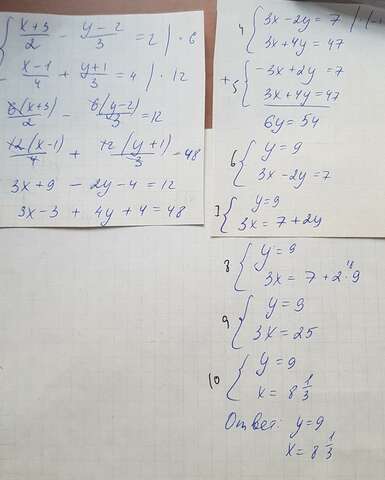 { x+3/2 - y-2/3 = 2 | · 6
x-1/4 + y+1/3 = 4 | · 12
6(x+3)/2 - 6(y-2)/3 = 12
12(x-1)/4 + 12(y+1)/3 = 48
3x+9 - 2y-4 = 12
3x-3 + 4y+4 = 48
4 { 3x-2y = 7
3x+4y = 47
+ 5 { -3x+2y = 7
3x+4y = 47
6y = 54
6 { y = 9
3x-2y = 7
7 { y = 9
3x = 7+2y
8 { y = 9
3x = 7+2·9 18
9 { y = 9
3x = 25
10 { y = 9
x = 8 1/3
Ответ: y=9
x = 8 1/3